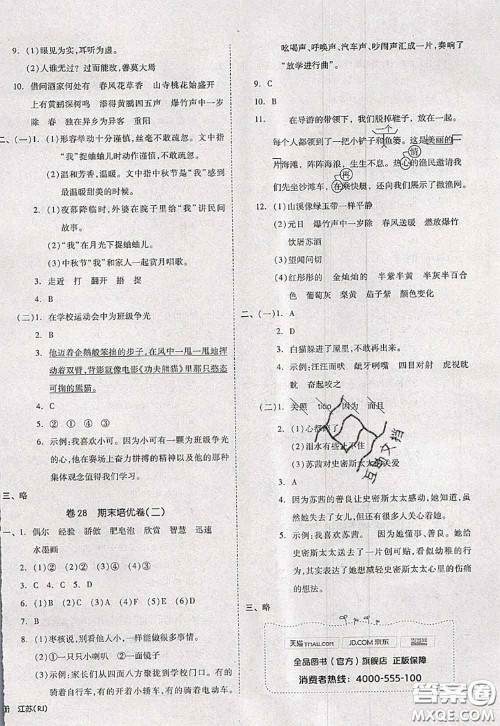 9. (1)眼见为实,耳听为虚。
(2)人谁无过?过而能改,善莫大焉
10. 借问酒家何处有 春风花草香 山寺桃花始盛开
上有黄鹂深树鸣 添得黄鹂四五声 爆竹声中一
岁除 春风 独在异乡为异客 重阳
二、(一)1. (1)形容举动十分谨慎,丝毫不敢疏忽。文中指
“我”捉蛐蛐儿时动作谨慎,不敢疏忽。
(2)温和芳香,气味甜美。文中指中秋节是我
最温暖甜美的时候。
2. (1)夜幕降临时,外婆在院子里给“我”讲民间
故事。
(2)“我”在月光下捉蛐蛐儿。
(3)中秋节“我”和家人一起赏月唱歌。
3. 走近 打 翻开 捂 捉
4. B
(二)1. 在学校运动会中为班级争光
2. B
3. 他迈着企鹅般笨拙的步子,在风中一甩一甩挥动
着双臂,背影就像电影《功夫熊猫》里那只憨态
可掬的熊猫。
4. C
5. ② ① ④ ③
6. 示例:我喜欢小可。因为小可有一颗为班级争光
的心。他在赛场上奋力拼搏的精神以及他的集
体观念值得我们学习。
三、略
卷 28 期末培优卷(二)
一、1. 偶尔 经验 骄傲 肥皂泡 欣赏 智慧 迅速
水墨画
2. (1)① (2)② (3)① (4)②
3. C 4. C 5. D
6. (1)B (2)D
7. B
8. (1)枣核说,别看我小,但我能做很多事情!
(2)①一只小喇叭 ②一面镜子
(3)示例:人们从四面八方来到学校门口。有的
开着小轿车,有的骑着自行车,有的骑着电动车。
册 江苏(RJ)
吆喝声、呼唤声、汽车声、吵闹声汇成一片,奏响了
“放学进行曲”。
9. C
10. B
11. 在导游的带领下,我们脱掉鞋子,一起去赶海。
每个人都领到了一个小铲子和鱼篓。这一美丽的
片海滩,阵阵海浪,生生不息。热心的渔民邀请我
们先坐沙滩车,在乘快艇,还向我们展示了撒渔网。
一个
情
再
12. (1)山溪像绿玉带一样平静
(2)元日 爆竹声中一岁除 春风送暖入屠苏
饮屠苏酒
(3)望闻问切
(4)红彤彤 金灿灿的 半紫半黄 半青半红
苔 葡萄灰 梨黄 茄子紫 变化极多
二、(一)1. A
2. D
3. 白猫躲进了屋里,不敢动弹。
4. 示例:汪汪而吠 龇牙咧嘴 四目对射 虎视眈
眈 奋起咬之
(二)1. 关照 因为 而且
2. (1)心都碎了
(2)泪水在眼眶里止不住
(3)苏茜对史密斯太太的关爱
3. C
4. 因为苏茜的善良让史密斯太太感动,使史密斯太
太那颗破碎的心有了愈合的可能。
5. 示例:我喜欢苏茜。因为她懂事、善良,她看似只
给史密斯太太送了一个创可贴,看似幼稚的行
为,其实表达了她想治愈史密斯太太心里的伤痛
的想法。
三、略
天猫 TMALL.COM JD.COM 京东
全品图书(官方)旗舰店 正版保障
消费者热线:4000-555-100
互动文档
答案圈
MXQE.COM